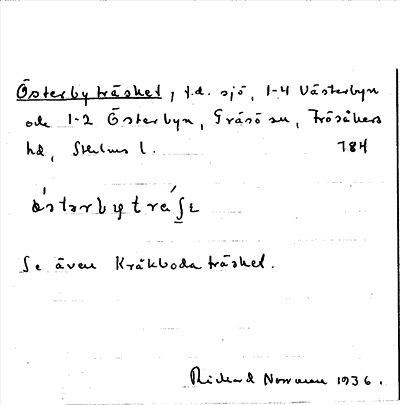 Österbyträsket, f.d. sjö, 1-4 Västerbyn
och 1-2 Österbyn, Gräsö sn, Frösåkers
hd, Sthlms l. 784
Se även Kråkbodaträsket.
Richard Norrman 1936.